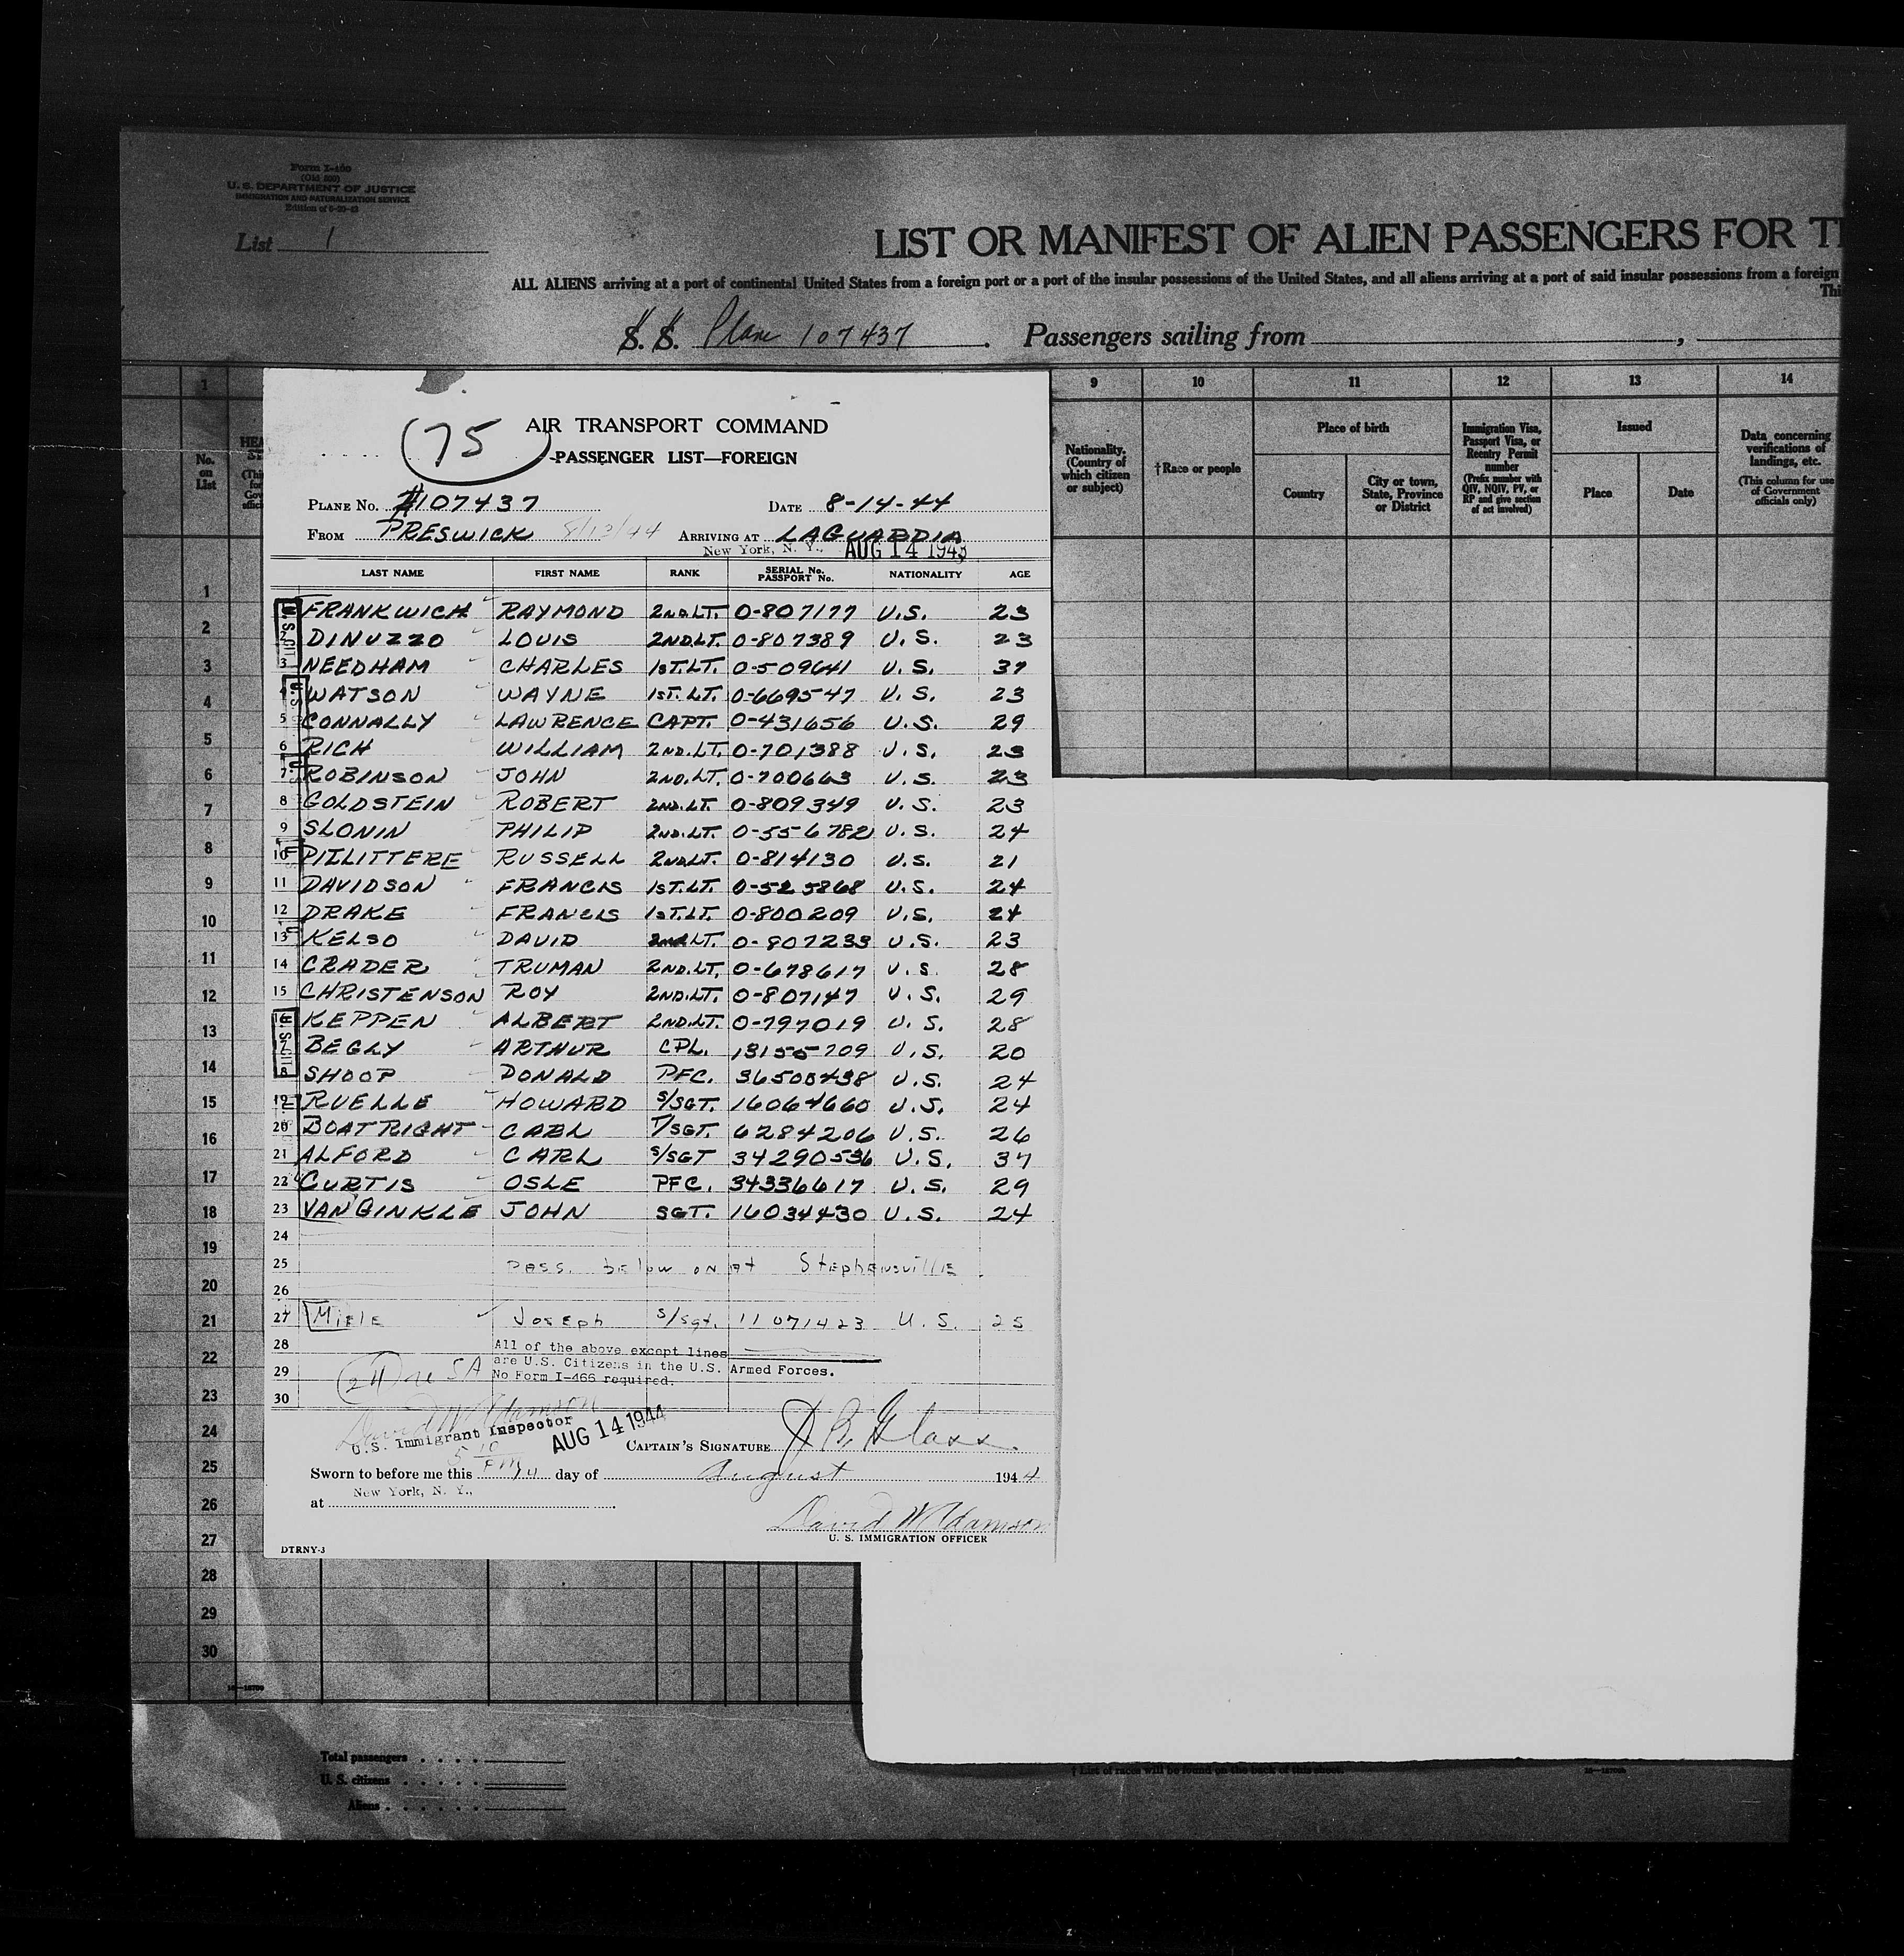 Form I-460
(Old 500)
U. S. DEPARTMENT OF JUSTICE
IMMIGRATION AND NATURALIZATION SERVICE
Edition of 6-20-43
List 1
LIST OR MANIFEST OF ALIEN PASSENGERS FOR T
ALL ALIENS arriving at a port of continental United States from a foreign port or a port of the insular possessions of the United States, and all aliens arriving at a port of said insular possessions from a foreign
Thi
S. S. Plane 107437 . Passengers sailing from ,
1 9 10 11 12 13 14
No. on List
Nationality. (Country of which citizen or subject)
†Race or people
Place of birth
Country
City or town, State, Province or District
Immigration Visa, Passport Visa, or Reentry Permit number
(Prefix number with QIV, NQIV, PV, or RP and give section of act involved)
Issued
Place Date
Data concerning verifications of landings, etc.
(This column for use of Government officials only)
75
AIR TRANSPORT COMMAND
PASSENGER LIST—FOREIGN
PLANE NO. #107437 DATE 8-14-44
FROM PRESWICK 8/13/44 ARRIVING AT LAGUARDIA
New York, N. Y., AUG 14 1943
LAST NAME FIRST NAME RANK SERIAL No. PASSPORT No. NATIONALITY AGE
FRANKWICH RAYMOND 2ND.LT. 0-807177 U.S. 23
2 DINUZZO LOUIS 2ND.LT. 0-807389 U.S. 23
3 NEEDHAM CHARLES 1ST.LT. 0-509641 U.S. 37
4 WATSON WAYNE 1ST.LT. 0-669547 U.S. 23
5 CONNALLY LAWRENCE CAPT. 0-431656 U.S. 29
6 RICH WILLIAM 2ND.LT. 0-701388 U.S. 23
7 ROBINSON JOHN 2ND.LT. 0-700663 U.S. 23
8 GOLDSTEIN ROBERT 2ND.LT. 0-809349 U.S. 23
9 SLONIN PHILIP 2ND.LT. 0-556782 U.S. 24
10 PITLITTERE RUSSELL 2ND.LT. 0-814130 U.S. 21
11 DAVIDSON FRANCIS 1ST.LT. 0-525868 U.S. 24
12 DRAKE FRANCIS 1ST.LT. 0-800209 U.S. 24
13 KELSO DAVID 2ND.LT. 0-807233 U.S. 23
14 CRADER TRUMAN 2ND.LT. 0-678617 U.S. 28
15 CHRISTENSON ROY 2ND.LT. 0-807147 U.S. 29
16 KEPPEN ALBERT 2ND.LT. 0-797019 U.S. 28
17 BEGLY ARTHUR CPL. 13155709 U.S. 20
18 SHOOP DONALD PFC. 36500438 U.S. 24
19 RUELLE HOWARD S/SGT. 16064660 U.S. 24
20 BOATRIGHT CARL T/SGT. 6284206 U.S. 26
21 ALFORD CARL S/SGT 34290536 U.S. 37
22 CURTIS OSLE PFC. 34336617 U.S. 29
23 VAN GINKLE JOHN SGT. 16034430 U.S. 24
24
25 PASS. below on at Stephensville.
26
27 Miele Joseph S/Sgt. 11071423 U.S. 25
28 All of the above except lines
are U.S. Citizens in the U.S. Armed Forces.
29 No Form I-466 required.
30
24
David W Adamson
U.S. Immigrant Inspector
AUG 14 1944
5 10 PM
CAPTAIN'S SIGNATURE J B. Glass
Sworn to before me this 14 day of August 1944
New York, N. Y.,
at
David W Adamson
U. S. IMMIGRATION OFFICER
DTRNY-3
1
2
3
4
5
6
7
8
9
10
11
12
13
14
15
16
17
18
19
20
21
22
23
24
25
26
27
28
29
30
Total passengers
U. S. citizens
Aliens
† List of races will be found on the back of this sheet.